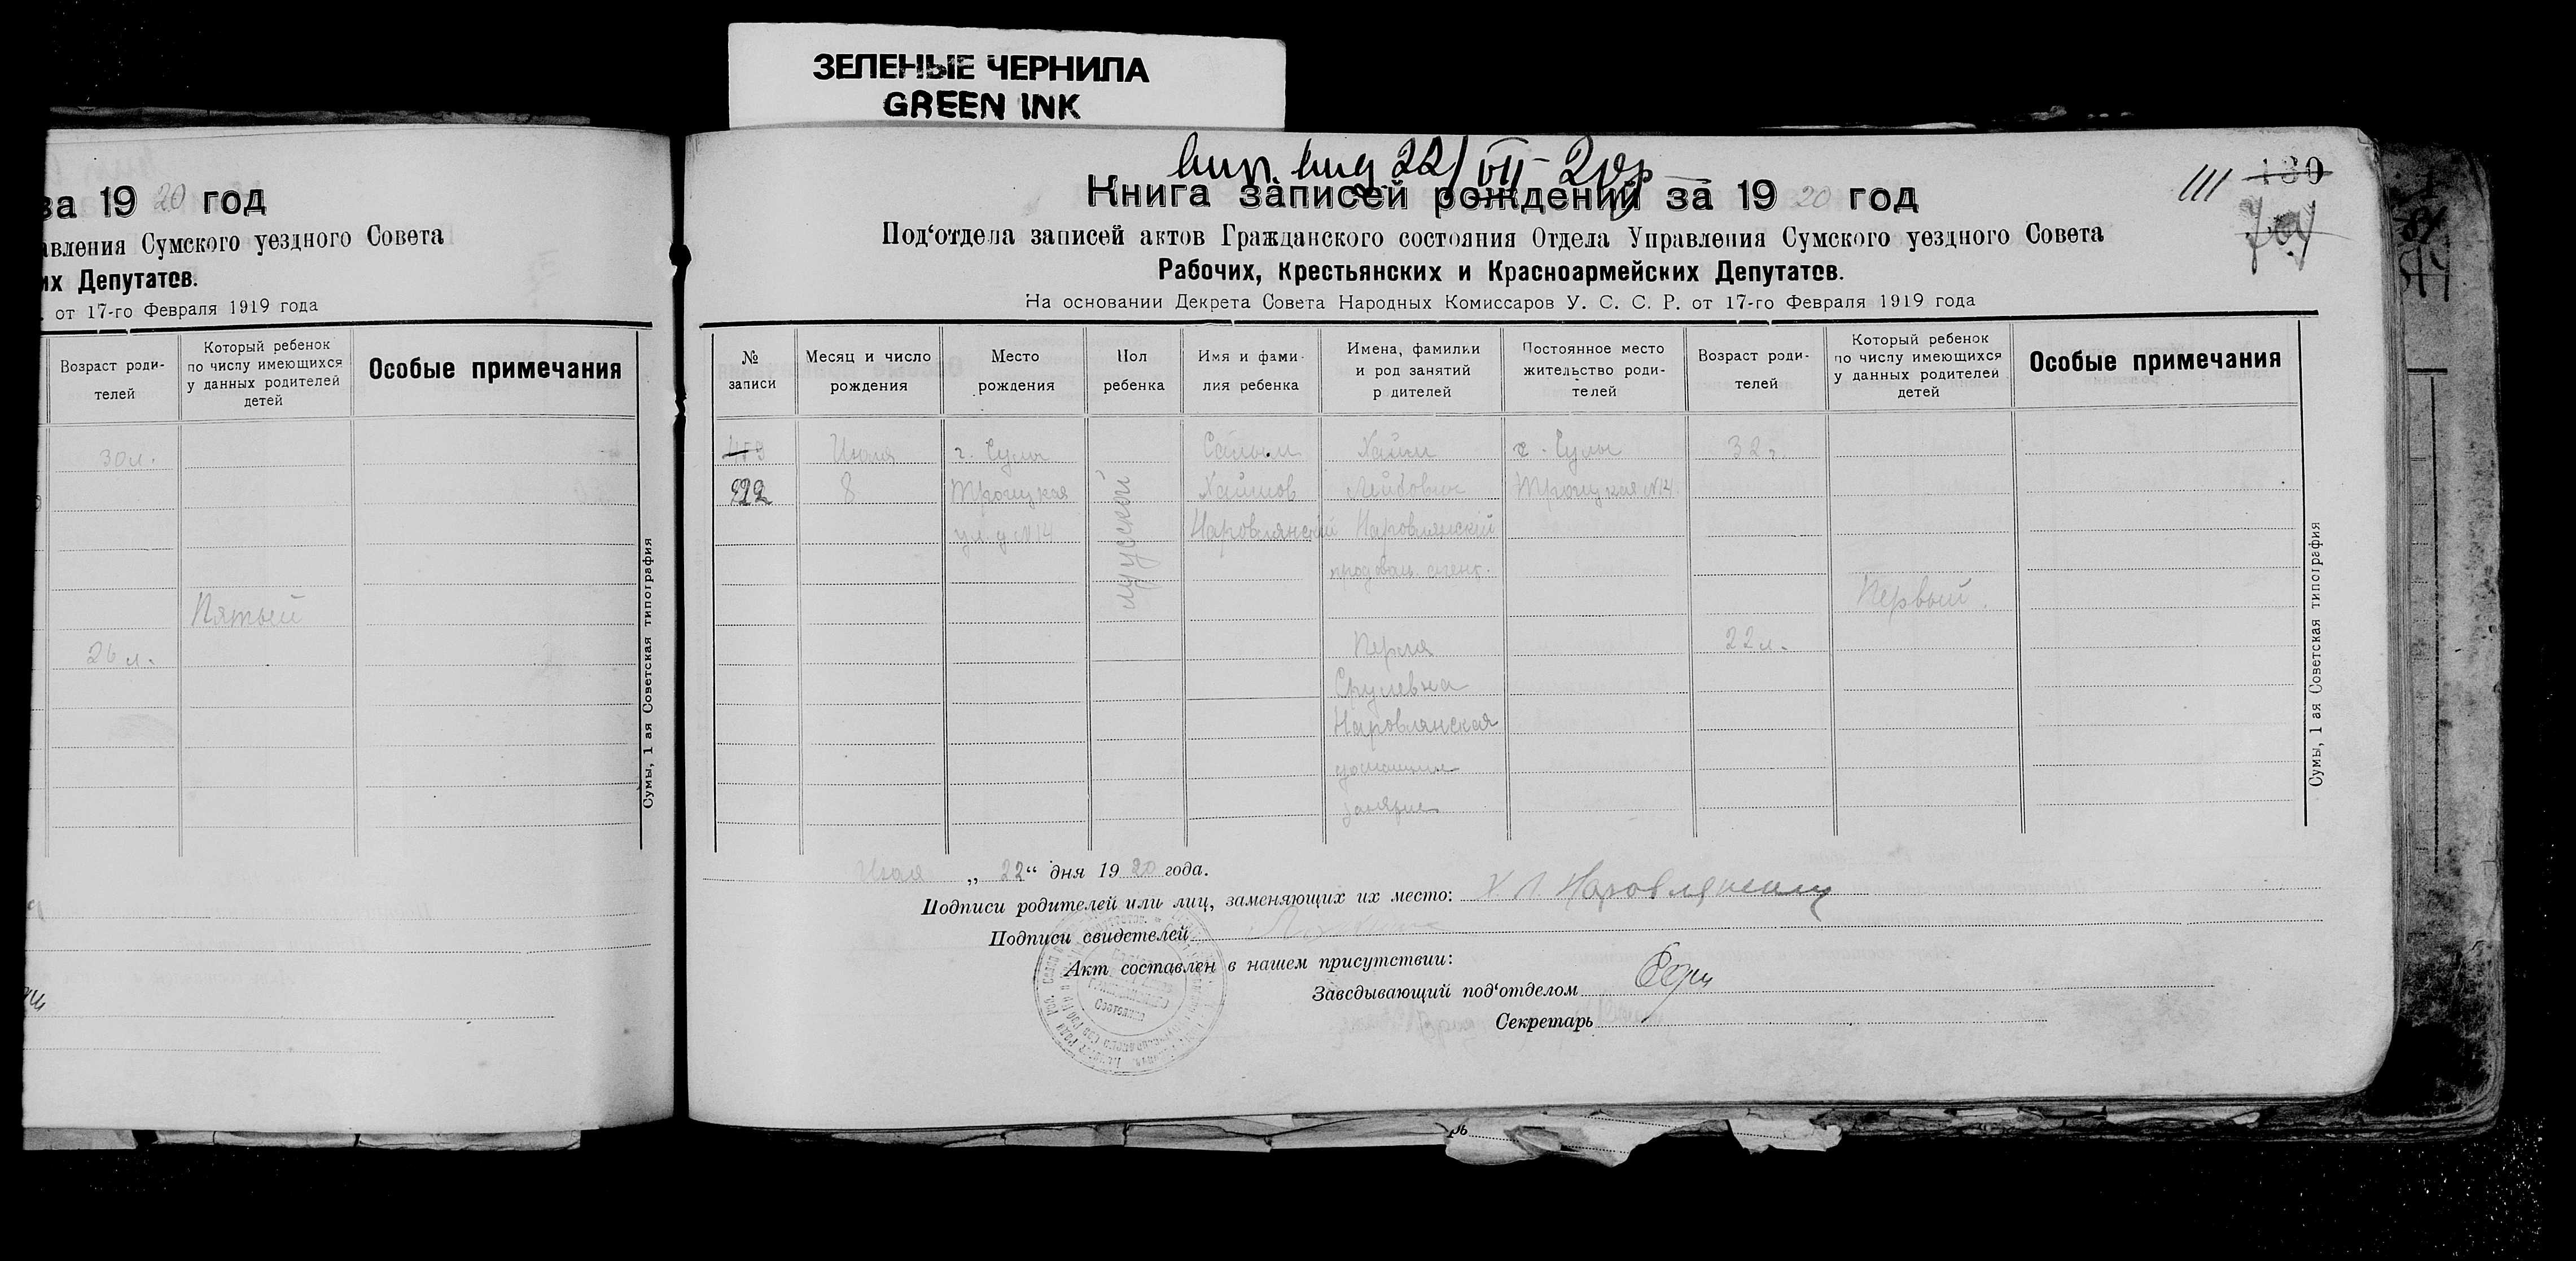 ЗЕЛЕНЫЕ ЧЕРНИЛА
GREEN INK
за 1920 год
авления Сумского уездного Совета
их Депутатов.
от 17-го Февраля 1919 года
Возраст роди-
телей
Который ребенок
по числу имеющихся
у данных родителей
детей
Особые примечания
30 л.
Пятый
26 л.
Сумы, 1 ая Советская типография
22/VII-20 г
111 130
Книга записей рождений за 1920 год
Под‘отдела записей актов Гражданского состояния Отдела Управления Сумского уездного Совета
Рабочих, Крестьянских и Красноармейских Депутатов.
На основании Декрета Совета Народных Комиссаров У. С. С. Р. от 17-го Февраля 1919 года
№
записи
Месяц и число
рождения
Место
рождения
Пол
ребенка
Имя и фами-
лия ребенка
Имена, фамилии
и род занятий
р дителей
Постоянное место
жительство роди-
телей
Возраст роди-
телей
Который ребенок
по числу имеющихся
у данных родителей
детей
Особые примечания
222
Июля
8
г. Сумы
Троицкая
ул. д. №14
мужской
Хаимов
Наровлянский
Хаим
Лейбович
Наровлянский
агент.
Перля
Срулевна
Наровлянская
домашния
занятия
г. Сумы
Троицкая №14
32 г.
22 л.
Первый.
Сумы, 1 ая Советская типография
Июля „ 22“ дня 1920 года.
Подписи родителей или лиц, заменяющих их место: Х Л Наровлянский
Подписи свидетелей
Акт составлен в нашем присутствии:
Заведывающий под‘отделом
Секретарь